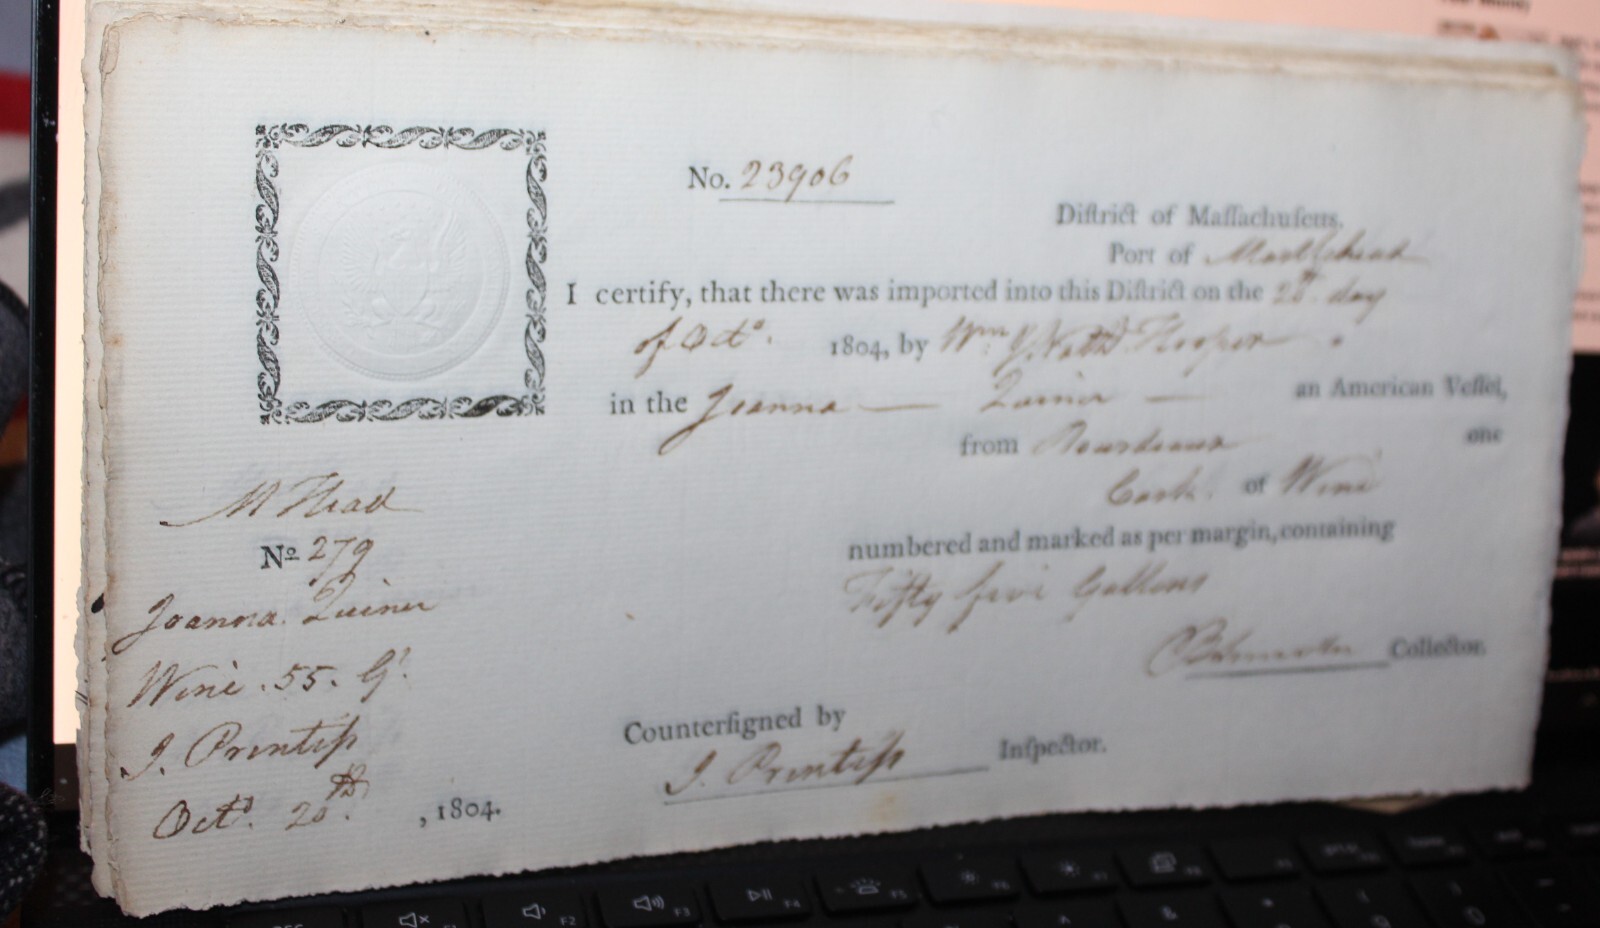 No. 23906
Diſtrict of Maſſachuſetts.
Port of Marblehead
I certify, that there was imported into this Diſtrict on the 20th. day
of Octo. 1804, by Wm. & Nathl. Hooper
in the Joanna — Quiner — an American Veſſel,
from Bourdeaux one
Cask. of Wine
numbered and marked as per margin, containing
Fifty five Gallons
Collector.
Counterſigned by
J. Prentiſs Inſpector.
M Head
No 279
Joanna. Quiner
Wine. 55. Gs.
J. Prentiſs
Octo. 20th. , 1804.
F2
F3
F4
F5